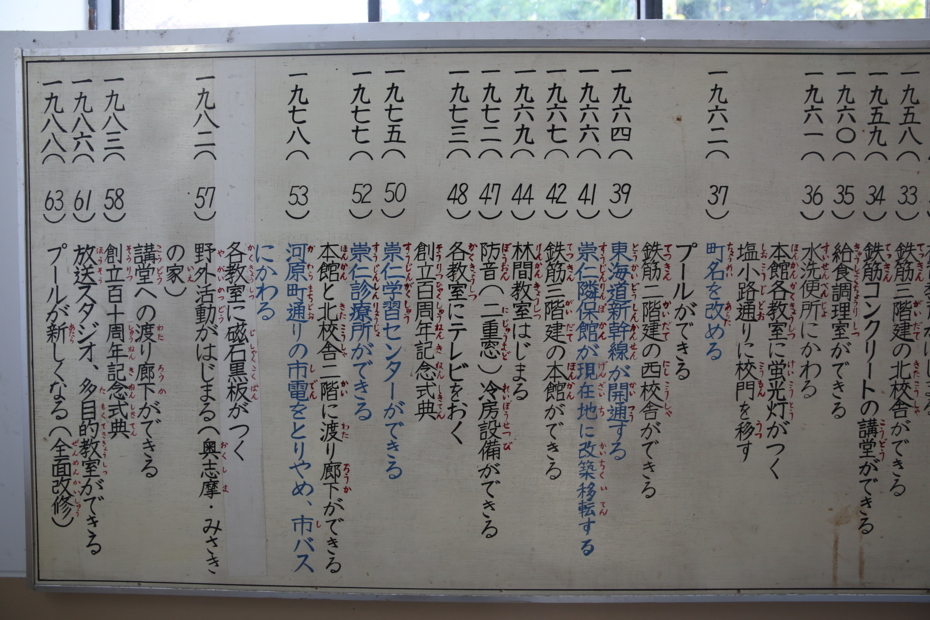 一九五八(33)鉄筋三階建の北校舎ができる
一九五九(34)鉄筋コンクリートの講堂ができる
一九六〇(35)給食調理室ができる
一九六一(36)水洗便所にかわる
本館各教室に蛍光灯がつく
塩小路通りに校門を移す
一九六二(37)町名を改める
プールができる
鉄筋二階建の西校舎ができる
一九六四(39)東海道新幹線が開通する
一九六六(41)崇仁隣保館が現在地に改築移転する
一九六七(42)鉄筋三階建の本館ができる
一九六九(44)林間教室はじまる
一九七二(47)防音(二重窓)冷房設備ができる
一九七三(48)各教室にテレビをおく
創立百周年記念式典
一九七五(50)崇仁学習センターができる
一九七七(52)崇仁診療所ができる
本館と北校舎二階に渡り廊下ができる
一九七八(53)河原町通りの市電をとりやめ、市バス
にかわる
各教室に磁石黒板がつく
一九八二(57)野外活動がはじまる(奥志摩・みさき
の家)
講堂への渡り廊下ができる
一九八三(58)創立百十周年記念式典
一九八六(61)放送スタジオ、多目的教室ができる
一九八八(63)プールが新しくなる(全面改修)